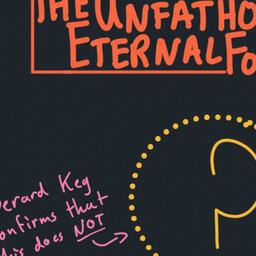 THE UNFATHO
ETERNAL FO
erard Keg
onfirms that
his does NOT